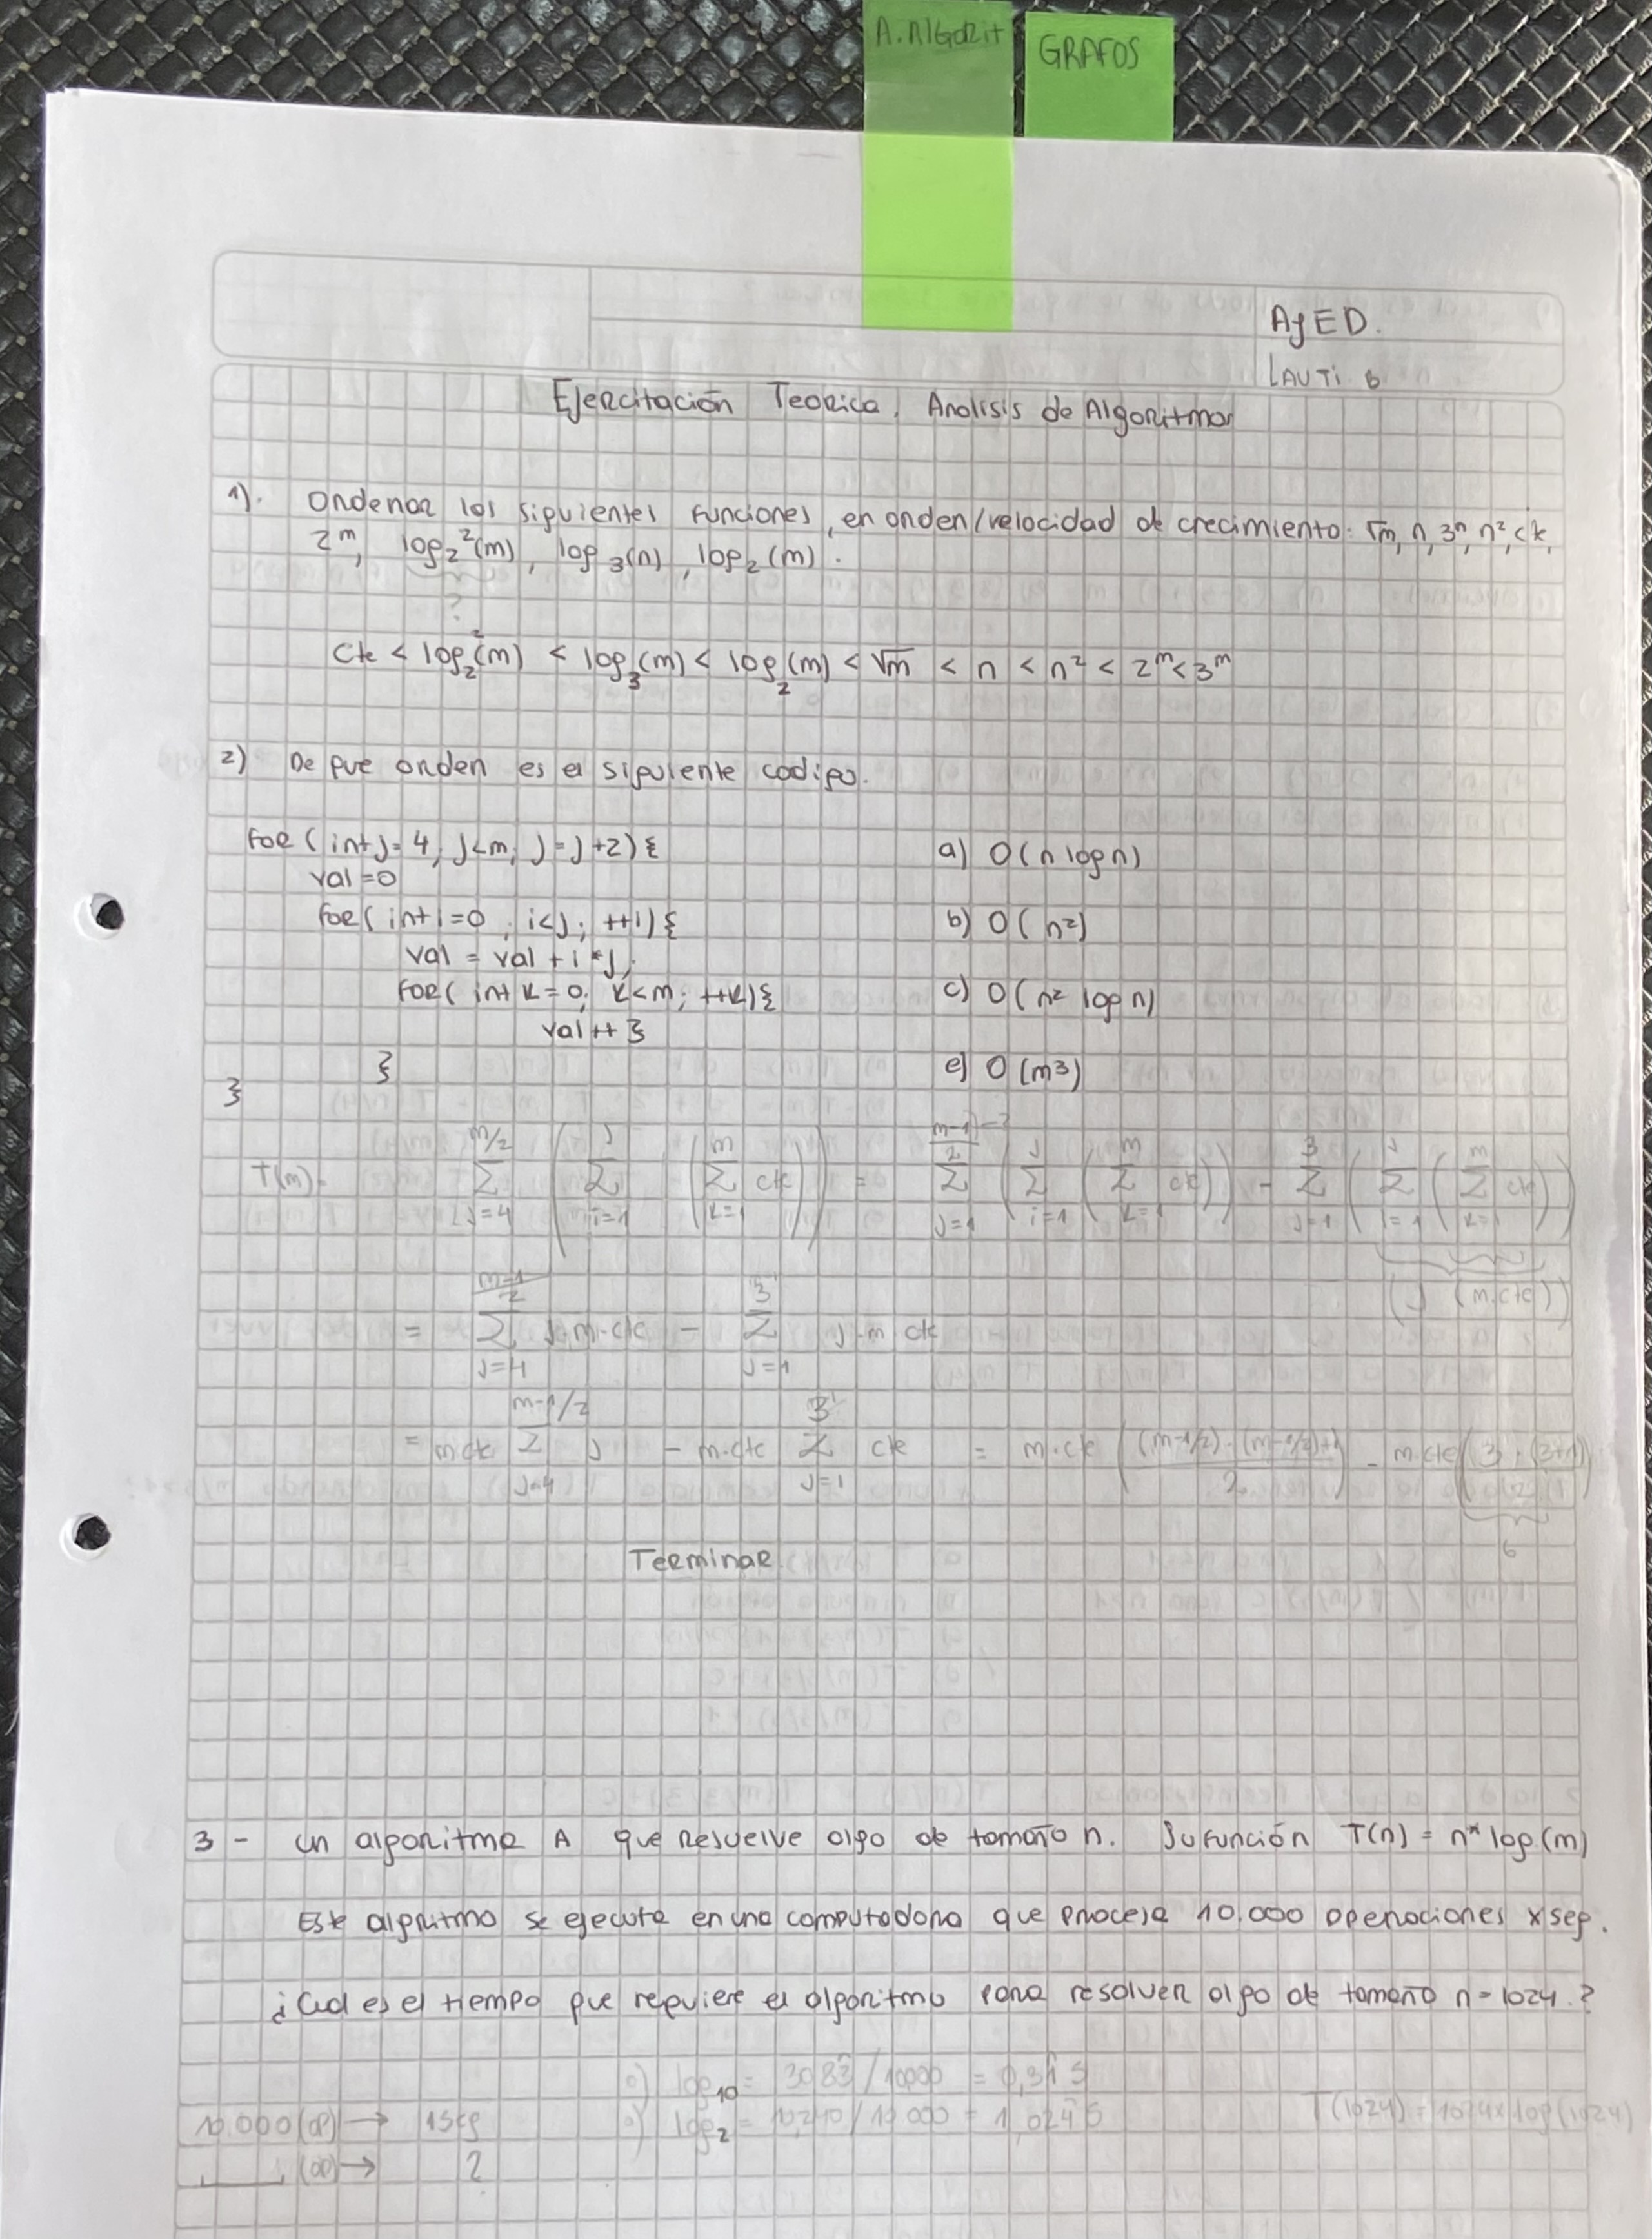 A.Algorit
GRAFOS
AyED.
LAUTI B
Ejercitación Teorica, Analisis de Algoritmos
1). Ordenar las siguientes funciones, en orden/velocidad de crecimiento: √n, n, 3ⁿ, n², cte,
2ⁿ, log₂²(n), log₃(n), log₂(n).
?
cte < log₂²(n) < log₃(n) < log₂(n) < √n < n < n² < 2ⁿ < 3ⁿ
2) De que orden es el siguiente codigo.
for (int j=4; j<n; j=j+2){
a) O(n log n)
val=0
for( int i=0; i<j; ++i){
b) O(n²)
val = val + i*j;
for( int k=0; k<n; ++k){
c) O(n² log n)
val++ }
}
e) O(n³)
}
T(n)= Σ j=4 n/2 ( Σ i=1 j ( Σ k=1 n cte )) = Σ j=1 ( Σ i=1 j ( Σ k=1 n cte )) - Σ j=1 3 ( Σ i=1 j ( Σ k=1 n cte ))
(j (n.cte))
= Σ j=4 (n-1)/2 j.n.cte - Σ j=1 3 j.n cte
= n.cte Σ j=4 n-1/2 j - n.cte Σ j=1 3 cte = n.cte ( (n-1/2).(n-1/2)+1 / 2 ) - n.cte ( 3.(3+1) / 2 )
6
Terminar.
3 - Un algoritmo A que resuelve algo de tamaño n. Su función T(n) = n* log(n)
Este algoritmo se ejecuta en una computadora que procesa 10.000 operaciones x seg.
¿Cual es el tiempo que requiere el algoritmo para resolver algo de tamaño n=1024.?
log₁₀ = 3083/10000 = 0,31 s
10.000(op) → 1seg
log₂ = 10240/10000 = 1,024 s
T(1024) = 1024*log(1024)
(op) → ?